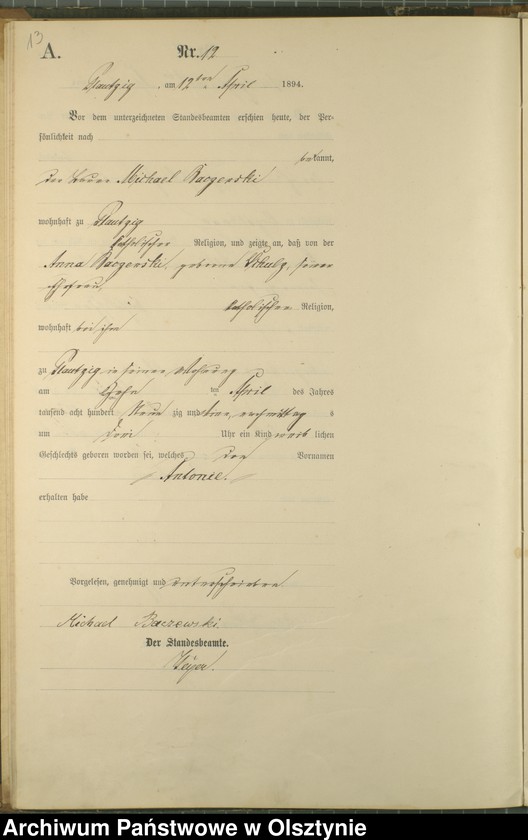 13
A.
Nr. 12
Plautzig, am 12ten April 1894.
Vor dem unterzeichneten Standesbeamten erschien heute, der Per-
sönlichkeit nach
bekannt,
der Michael Baczewski
wohnhaft zu Plautzig
katholischer Religion, und zeigte an, daß von der
Anna Baczewski, geborene Schulz, seiner
Ehefrau,
katholischer Religion,
wohnhaft bei ihm
zu Plautzig in seiner Wohnung
am Zehn ten April des Jahres
tausend acht hundert Neun zig und vier, nachmittag s
um drei Uhr ein Kind weib lichen
Geschlechts geboren worden sei, welches den Vornamen
Antonie.
erhalten habe
Vorgelesen, genehmigt und unterschrieben
Michael Baczewski
Der Standesbeamte.
Archiwum Państwowe w Olsztynie